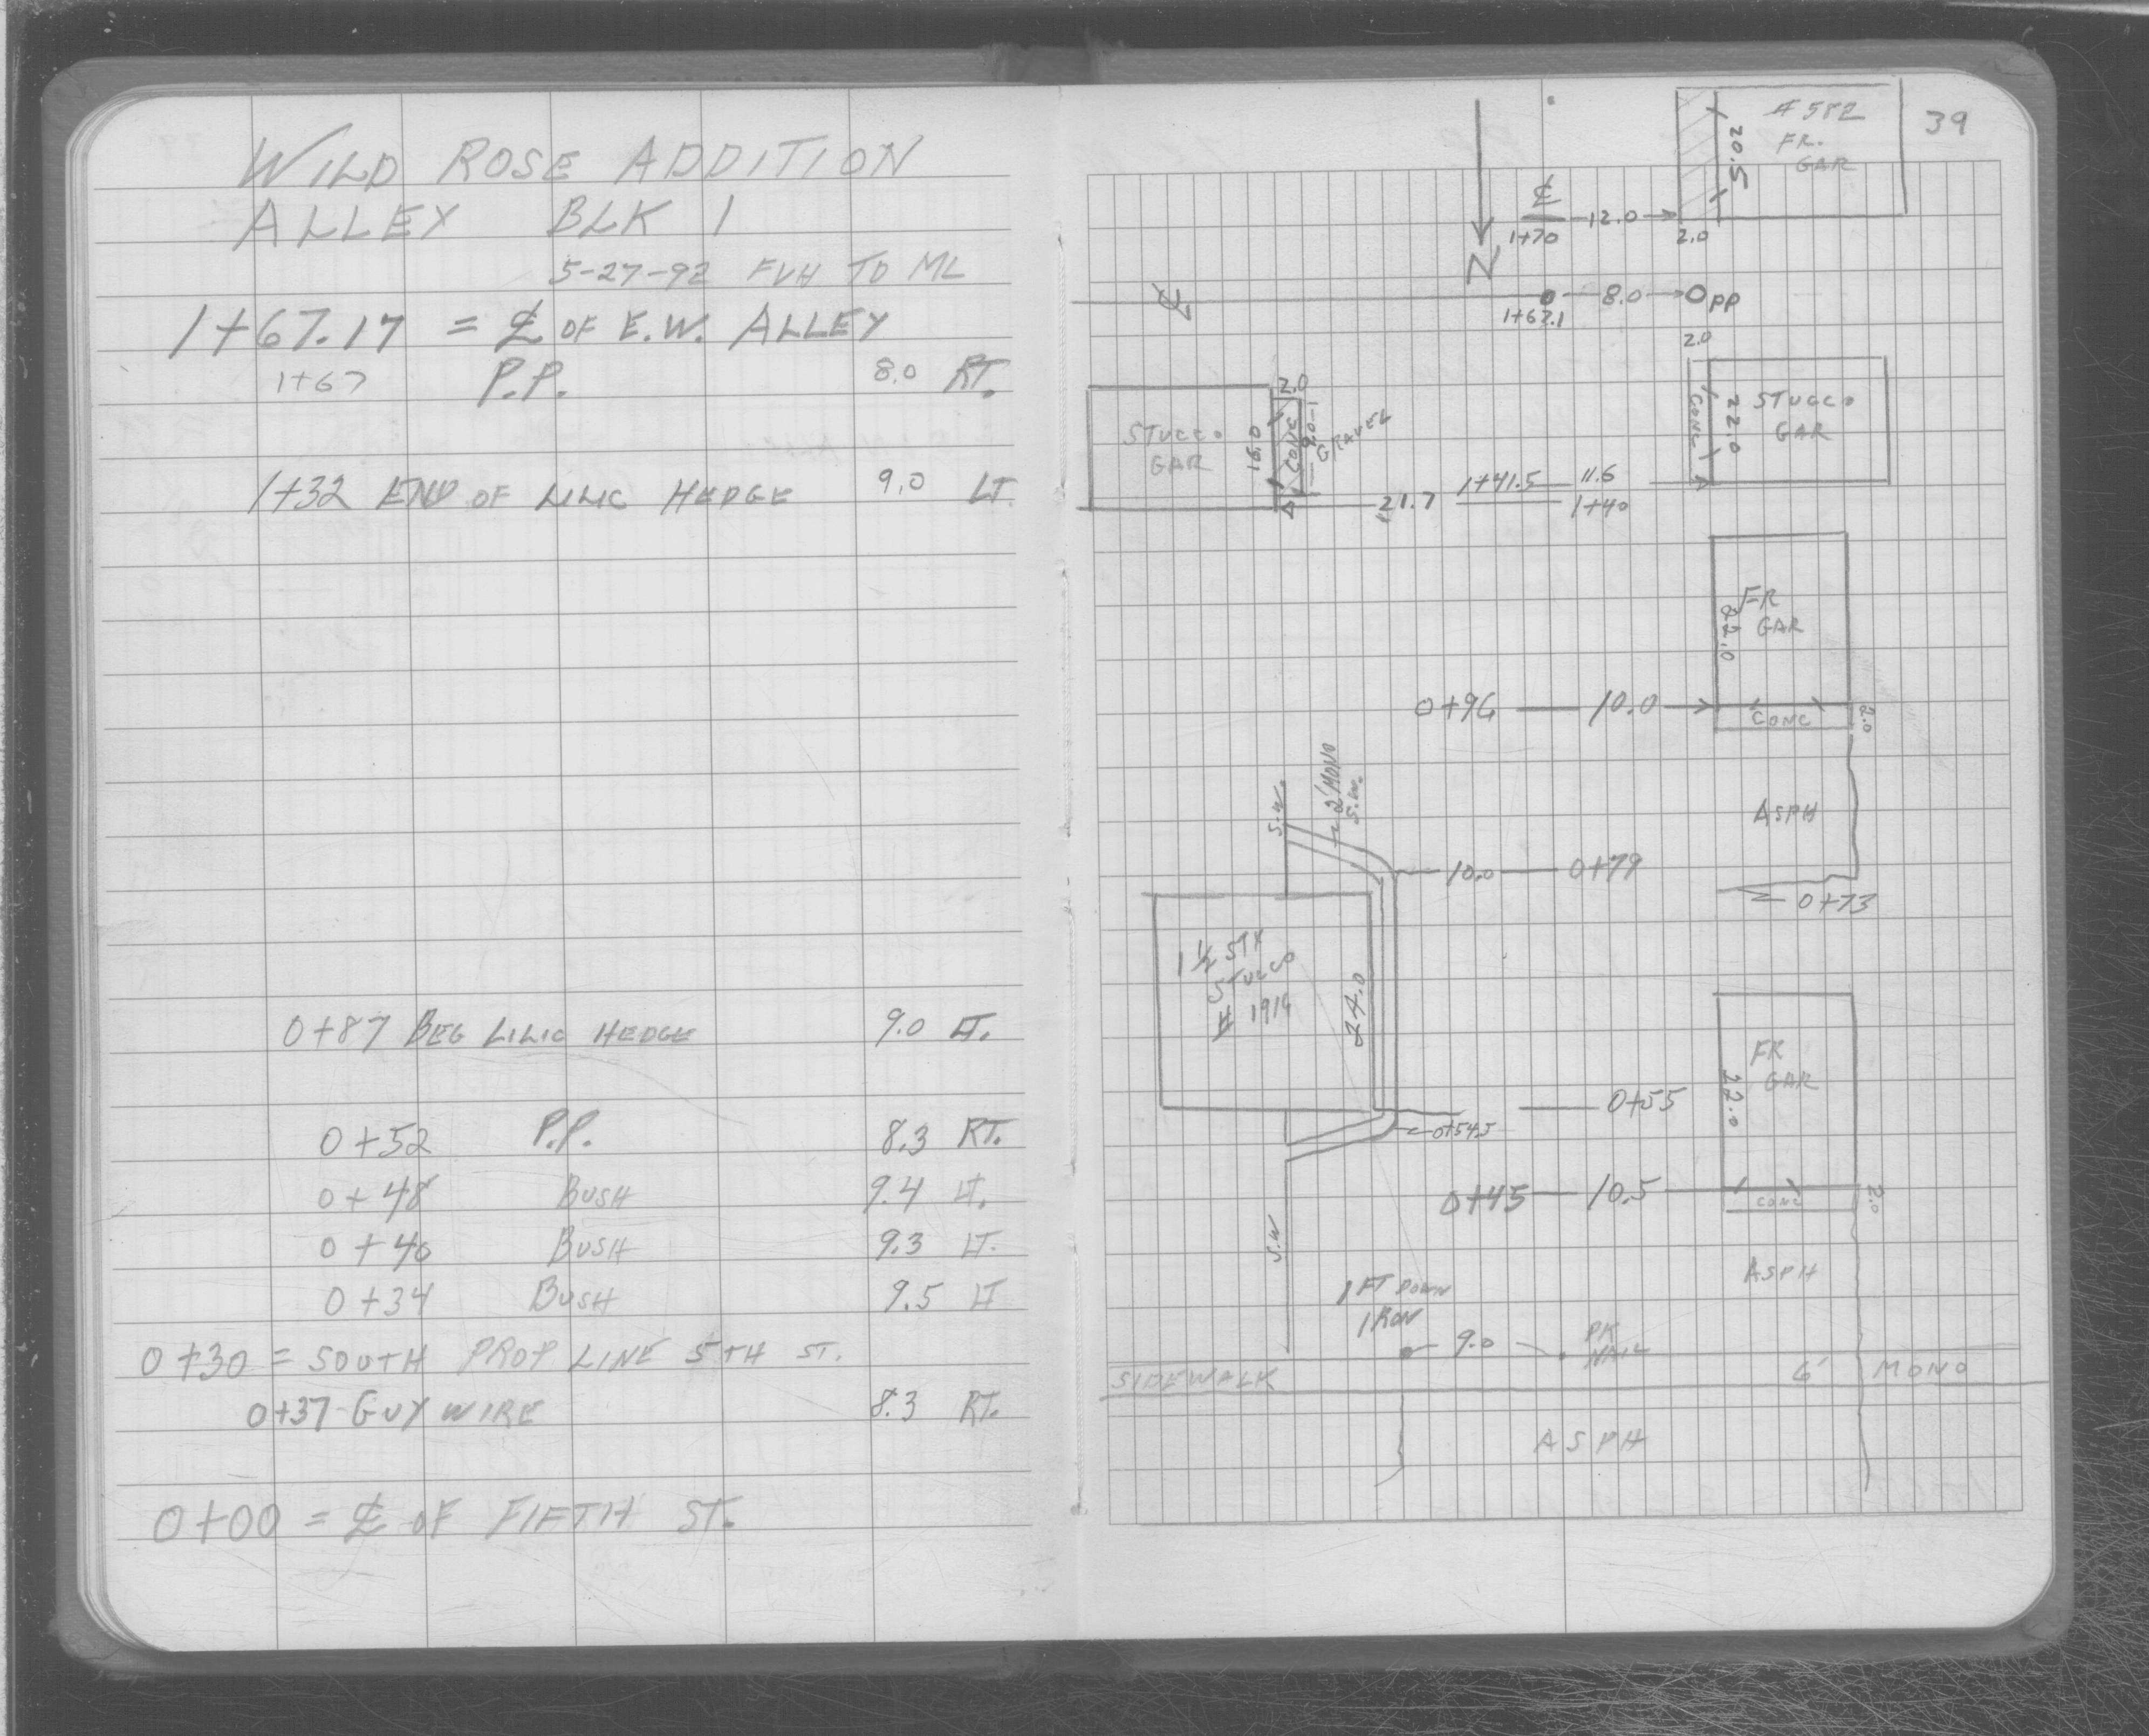 WILD ROSE ADDITION
ALLEY BLK 1
5-27-92 FVH TO ML
1+67.17 = ℄ OF E.W. ALLEY
1+67 P.P. 8.0 RT.
1+32 END OF LILIC HEDGE 9.0 LT
0+87 BEG LILIC HEDGE 9.0 LT.
0+52 P.P. 8.3 RT.
0+48 BUSH 9.4 LT.
0+40 BUSH 9.3 LT.
0+34 BUSH 9.5 LT
0+30 = SOUTH PROP LINE 5TH ST.
0+37 GUY WIRE 8.3 RT.
0+00 = ℄ OF FIFTH ST.
39
#582
FR.
GAR
20.5
℄
12.0
1+70
2.0
N
℄
8.0 PP
1+67.1
2.0
STUCCO
GAR
22.0
CONC
2.0
STUCCO
GAR
18.0
CONC
GRAVEL
21.7
1+41.5 11.6
1+40
FR
GAR
22.0
0+96 10.0
CONC
2.0
S.W.
2' MONO
S.W.
ASPH
10.0 0+79
0+73
1 1/2 STY
STUCCO
# 1914
24.0
FR
GAR
22.0
0+55
0+54.5
0+45 10.5
CONC
2.0
S.W
ASPH
1 FT DOWN
IRON
9.0
PK
NAIL
SIDEWALK 6' MONO
ASPH